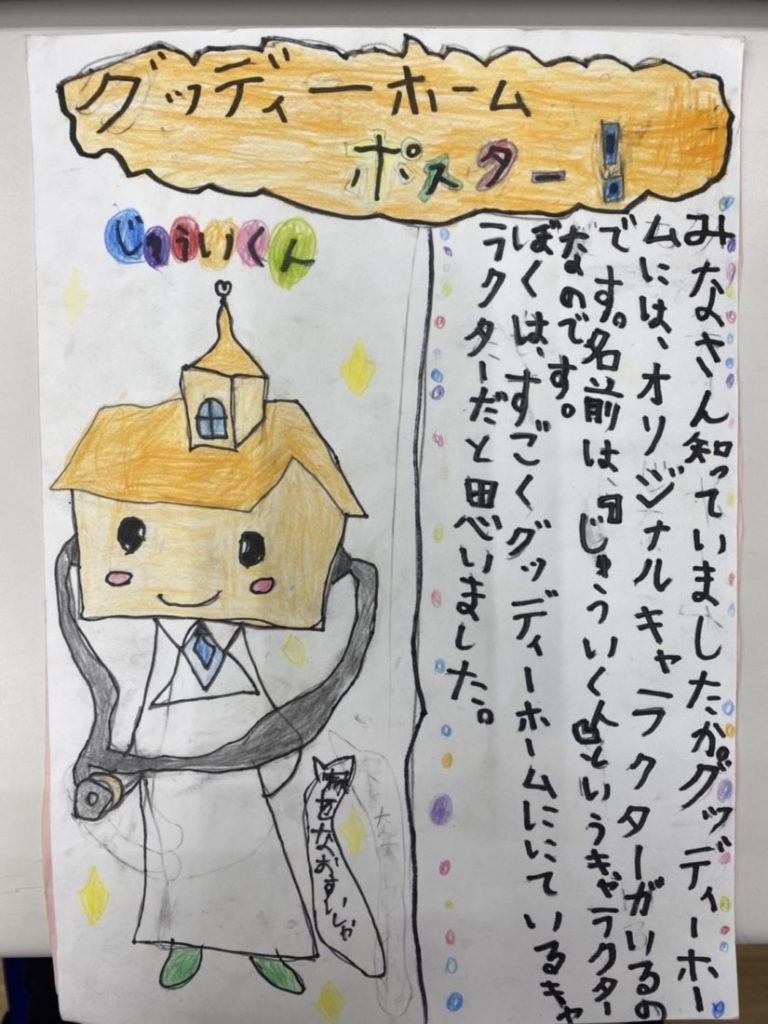 グッディーホーム
ポスター!
じゅういくん
みなさん知っていましたか。グッディーホー
ムには、オリジナルキャラクターがいるの
です。名前は、『じゅういくん』というキャラクター
なのです。
ぼくは、すごくグッディーホームににているキャ
ラクターだと思いました。
家をなおすいしゃ